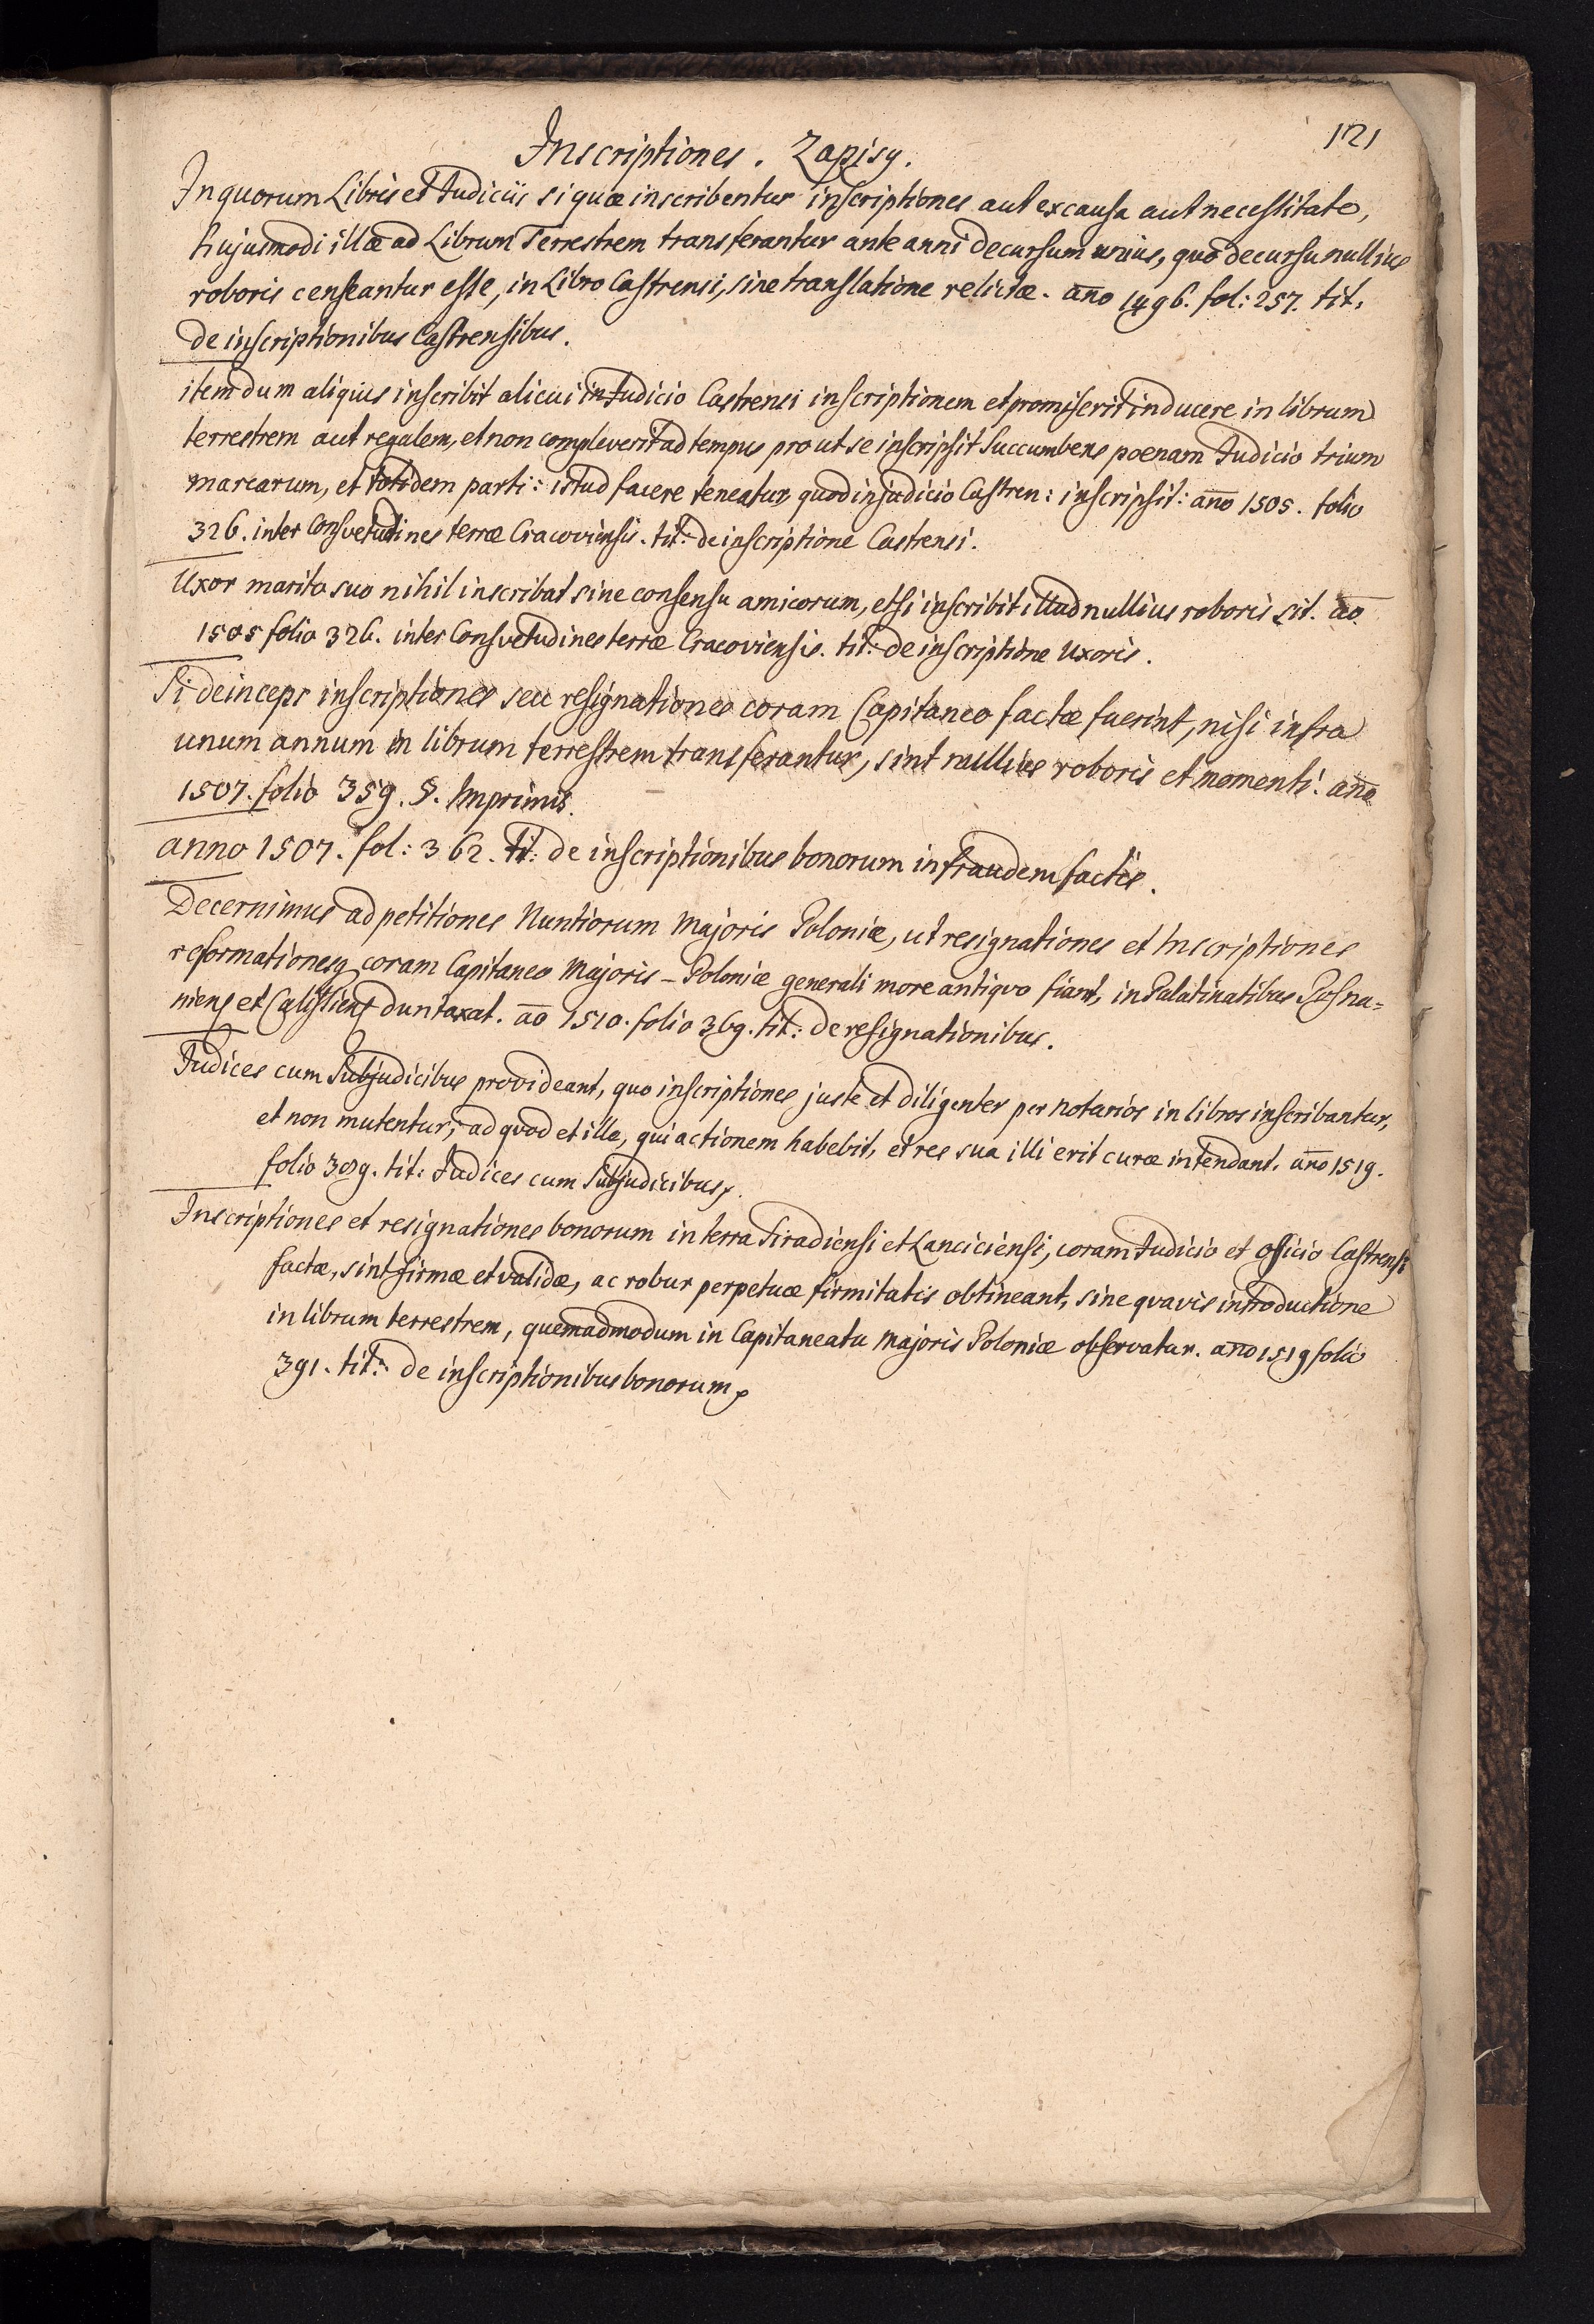 121
Inscriptiones. Zapisy.
In quorum Libris et Judiciis si quæ inscribentur inscriptiones aut ex causa aut necessitate,
hujusmodi illæ ad Librum Terrestrem transferantur ante anni decursum unius, quo decursu nullius
roboris censeantur esse, in Libro Castrensi, sine translatione relictæ. año 1496. fol: 257. tit.
de inscriptionibus Castrensibus.
item dum aliquis inscribit alicui in Judicio Castrensi inscriptionem et promiserit inducere in librum
terrestrem aut regalem, et non compleverit ad tempus prout se inscripsit succumbens poenam Judicio trium
marcarum, et totidem parti: istud facere teneatur, quod in judicio Castren: inscripsit: año 1505. folio
326. inter Consvetudines terræ Cracoviensis. tit: de inscriptione Castrensi.
Uxor marito suo nihil inscribat sine consensu amicorum, et si inscribit illud nullius roboris sit. ao
1505 folio 326. inter Consvetudines terræ Cracoviensis. tit: de inscriptione Uxoris.
Si deinceps inscriptiones seu resignationes coram Capitaneo factæ fuerint, nisi infra
unum annum in librum terrestrem transferantur, sint nullius roboris et momenti. año
1507. folio 359. §. Imprimis.
anno 1507. fol: 362. tit: de inscriptionibus bonorum in fraudem factis.
Decernimus ad petitiones Nuntiorum Majoris Poloniæ, ut resignationes et Inscriptiones
reformationesq coram Capitaneo Majoris - Poloniæ generali more antiqvo fiant, in Palatinatibus Posna=
niens et Calissiens duntaxat. ao 1510. folio 369. tit: de resignationibus.
Judices cum Subjudicibus provideant, quo inscriptiones juste et diligenter per notarios in libros inscribantur,
et non mutentur, ad qvod et ille, qui actionem habebit, et res sua illi erit curæ intendant. año 1519.
folio 389. tit: Judices cum Subjudicibus.
Inscriptiones et resignationes bonorum in terra Siradiensi et Lanciciensi, coram Judicio et officio Castrensi
factæ, sint firmæ et validæ, ac robur perpetuæ firmitatis obtineant, sine qvavis introductione
in librum terrestrem, quemadmodum in Capitaneatu Majoris Poloniæ observatur. año 1519 folio
391. tit: de inscriptionibus bonorum.